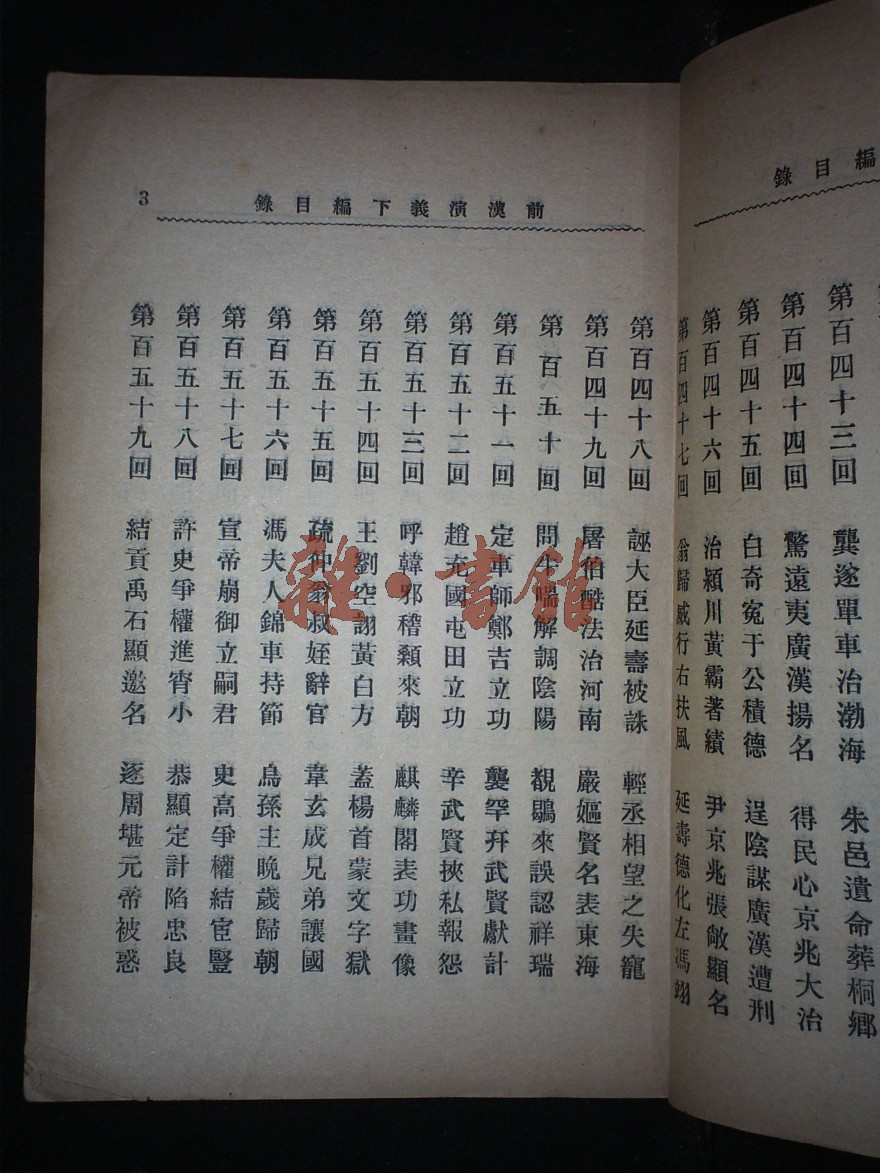 編目錄
第百四十三回 龔遂單車治渤海 朱邑遺命葬桐鄉
第百四十四回 驚遠夷廣漢揚名 得民心京兆大治
第百四十五回 白奇冤于公積德 逞陰謀廣漢遭刑
第百四十六回 治潁川黃霸著績 尹京兆張敞顯名
第百四十七回 翁歸威行右扶風 延壽德化左馮翊
前漢演義下編目錄 3
第百四十八回 誣大臣延壽被誅 輕丞相望之失寵
第百四十九回 屠伯酷法治河南 嚴嫗賢名表東海
第百五十回 問牛喘解調陰陽 覩鶡來誤認祥瑞
第百五十一回 定軍師鄭吉立功 襲罕幵武賢獻計
第百五十二回 趙充國屯田立功 辛武賢挾私報怨
第百五十三回 呼韓邪稽顙來朝 麒麟閣表功畫像
第百五十四回 王劉空詡黃白方 蓋楊首蒙文字獄
第百五十五回 疏仲翁叔姪辭官 韋玄成兄弟讓國
第百五十六回 馮夫人錦車持節 烏孫主晚歲歸朝
第百五十七回 宣帝崩御立嗣君 史高爭權結宦豎
第百五十八回 許史爭權進宵小 恭顯定計陷忠良
第百五十九回 結貢禹石顯邀名 逐周堪元帝被惑
雜·書館